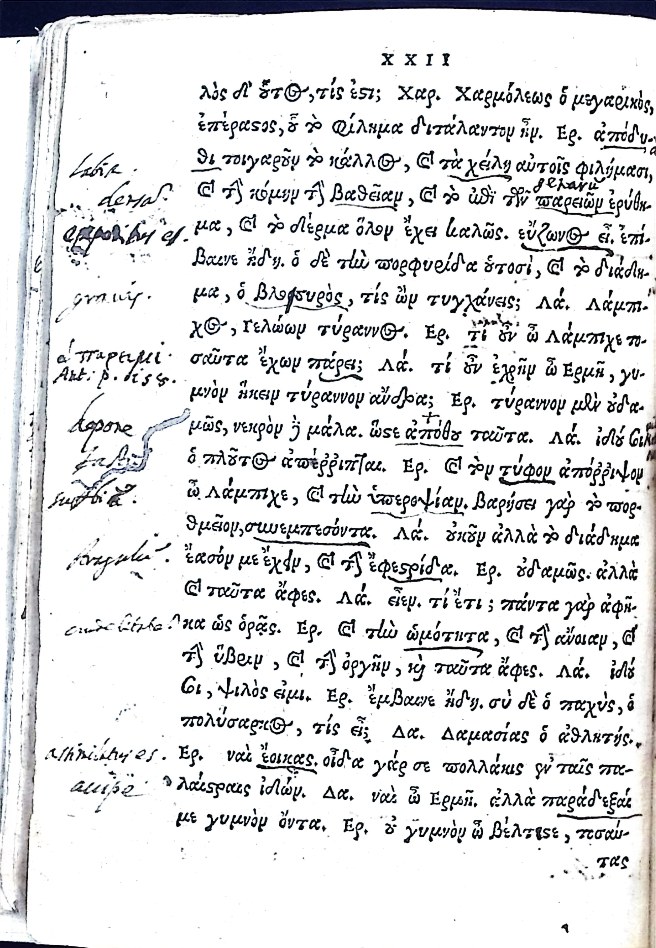 XXII
λὸς δ' οὗτος, τίς ἐστι; Χαρ. Χαρμόλεως ὁ μεγαρικὸς,
ἐπέραστος, οὗ τὸ φίλημα διτάλαντον ἦν. Ερ. ἀπόδυ-
θι τοιγαροῦν τὸ κάλλος, καὶ τὰ χείλη αὐτοῖς φιλήμασι,
labia.
καὶ τὴν κόμην τὴν βαθεῖαν, καὶ τὸ ἐπὶ τῶν παρειῶν ἐρύθη-
densa.
μα, καὶ τὸ δέρμα ὅλον ἔχει καλῶς. εὔζωνος εἶ. ἐπί-
βαινε ἤδη. ὁ δὲ τὴν πορφυρίδα οὑτοσὶ, καὶ τὸ διάδη-
μα, ὁ βλοσυρὸς, τίς ὢν τυγχάνεις; Λά. Λάμπι-
gravis.
χος, Γελώων τύραννος. Ερ. τί οὖν ὦ Λάμπιχε το-
σαῦτα ἔχων πάρει; Λά. τί οὖν ἐχρῆν ὦ Ερμῆ, γυ-
ἀπαρειμι.
μνὸν ἥκειν τύραννον ἄνδρα; Ερ. τύραννον μὲν οὐδα-
μῶς, νεκρὸν δὲ μάλα. ὥστε ἀπόθου ταῦτα. Λά. ἰδού σοι
depone
ὁ πλοῦτος ἀπέῤῥιπται. Ερ. καὶ τὸν τύφον ἀπόῤῥιψον
ὦ Λάμπιχε, καὶ τὴν ὑπεροψίαν. βαρήσει γὰρ τὸ πορ-
θμεῖον, συνεμπεσόντα. Λά. οὐκοῦν ἀλλὰ τὸ διάδημα
ἔασόν με ἔχειν, καὶ τὴν ἐφεστρίδα. Ερ. οὐδαμῶς. ἀλλὰ
καὶ ταῦτα ἄφες. Λά. εἶεν. τί ἔτι; πάντα γὰρ ἀφῆ-
κα ὡς ὁρᾷς. Ερ. καὶ τὴν ὠμότητα, καὶ τὴν ἄνοιαν, καὶ
τὴν ὕβριν, καὶ τὴν ὀργὴν, καὶ ταῦτα ἄφες. Λά. ἰδού
σοι, ψιλός εἰμι. Ερ. ἔμβαινε ἤδη. σὺ δὲ ὁ παχὺς, ὁ
πολύσαρκος, τίς εἶ; Δα. Δαμασίας ὁ ἀθλητής.
Ερ. ναὶ ἔοικας. οἶδα γάρ σε πολλάκις ἐν ταῖς πα-
λαίστραις ἰδών. Δα. ναὶ ὦ Ερμῆ. ἀλλὰ παράδεξαί
accipe
με γυμνὸν ὄντα. Ερ. οὐ γυμνὸν ὦ βέλτιστε, τοσαύ-
τας